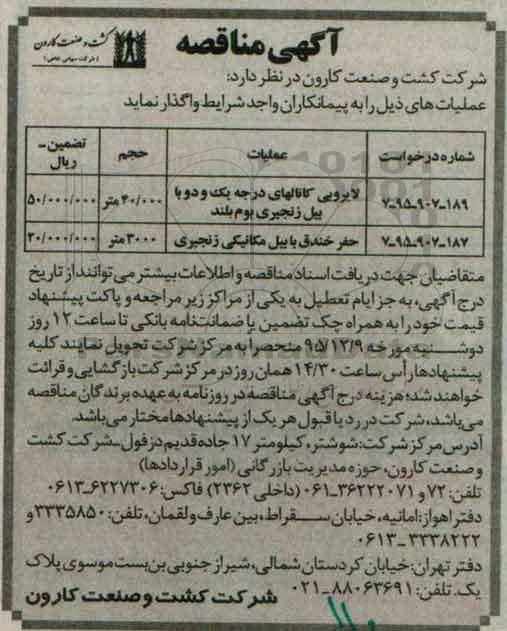 آگهی مناقصه
کشت و صنعت کارون
(شرکت سهامی خاص)
شرکت کشت و صنعت کارون در نظر دارد:
عملیات های ذیل را به پیمانکاران واجد شرایط واگذار نماید
شماره درخواست عملیات حجم تضمین-ریال
۷-۹۵-۹۰۷-۱۸۹ لایروبی کانالهای درجه یک و دو با بیل زنجیری بوم بلند ۴۰/۰۰۰ متر ۵۰/۰۰۰/۰۰۰
۷-۹۵-۹۰۷-۱۸۷ حفر خندق با بیل مکانیکی زنجیری ۳۰۰۰ متر ۲۰/۰۰۰/۰۰۰
متقاضیان جهت دریافت اسناد مناقصه و اطلاعات بیشتر می توانند از تاریخ
درج آگهی، به جز ایام تعطیل به یکی از مراکز زیر مراجعه و پاکت پیشنهاد
قیمت خود را به همراه چک تضمین یا ضمانتنامه بانکی تا ساعت ۱۲ روز
دوشنبه مورخه ۹۵/۱۲/۹ منحصراً به مرکز شرکت تحویل نمایند کلیه
پیشنهادها رأس ساعت ۱۴/۳۰ همان روز در مرکز شرکت بازگشایی و قرائت
خواهند شد؛ هزینه درج آگهی مناقصه در روزنامه به عهده برندگان مناقصه
می‌باشد، شرکت در رد یا قبول هر یک از پیشنهادها مختار می‌باشد.
آدرس مرکز شرکت: شوشتر، کیلومتر ۱۷ جاده قدیم دزفول-شرکت کشت
و صنعت کارون، حوزه مدیریت بازرگانی (امور قراردادها)
تلفن: ۷۲ و ۳۶۲۲۲۰۷۱-۰۶۱ (داخلی ۲۳۶۲) فاکس: ۶۲۲۷۳۰۶-۰۶۱۳
دفتر اهواز: امانیه، خیابان سقراط، بین عارف و لقمان، تلفن: ۳۳۳۵۸۵۰ و
۳۳۳۸۲۲۲-۰۶۱۳
دفتر تهران: خیابان کردستان شمالی، شیراز جنوبی بن بست موسوی پلاک
یک. تلفن: ۸۸۰۶۳۶۹۱-۰۲۱
شرکت کشت و صنعت کارون